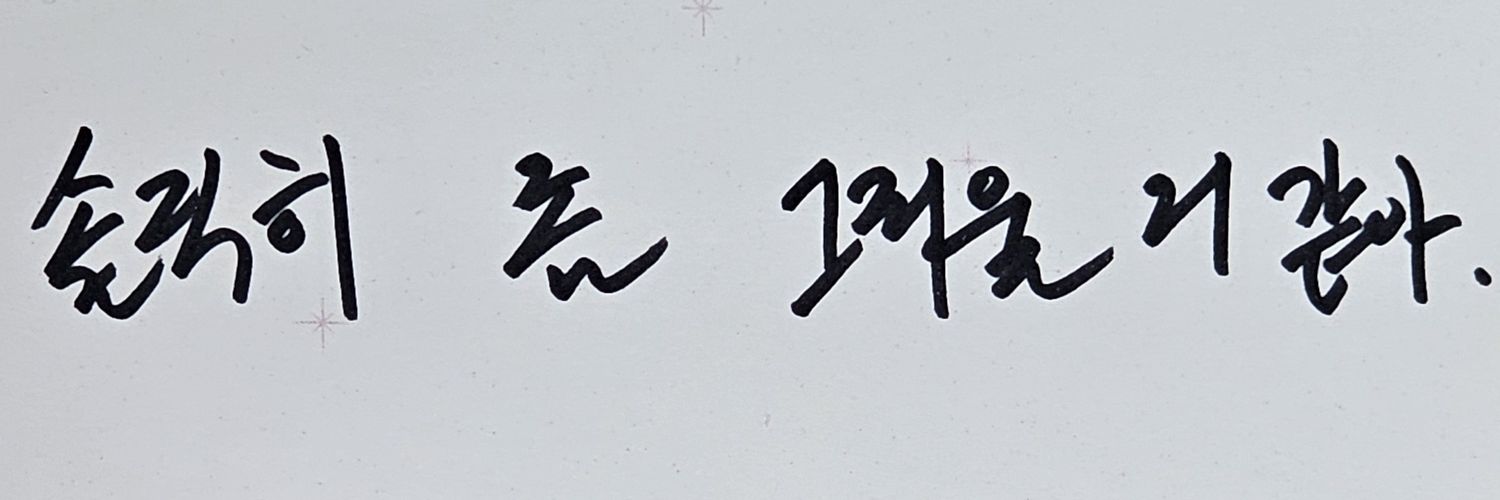 솔직히 좀 그리울 거 같아.